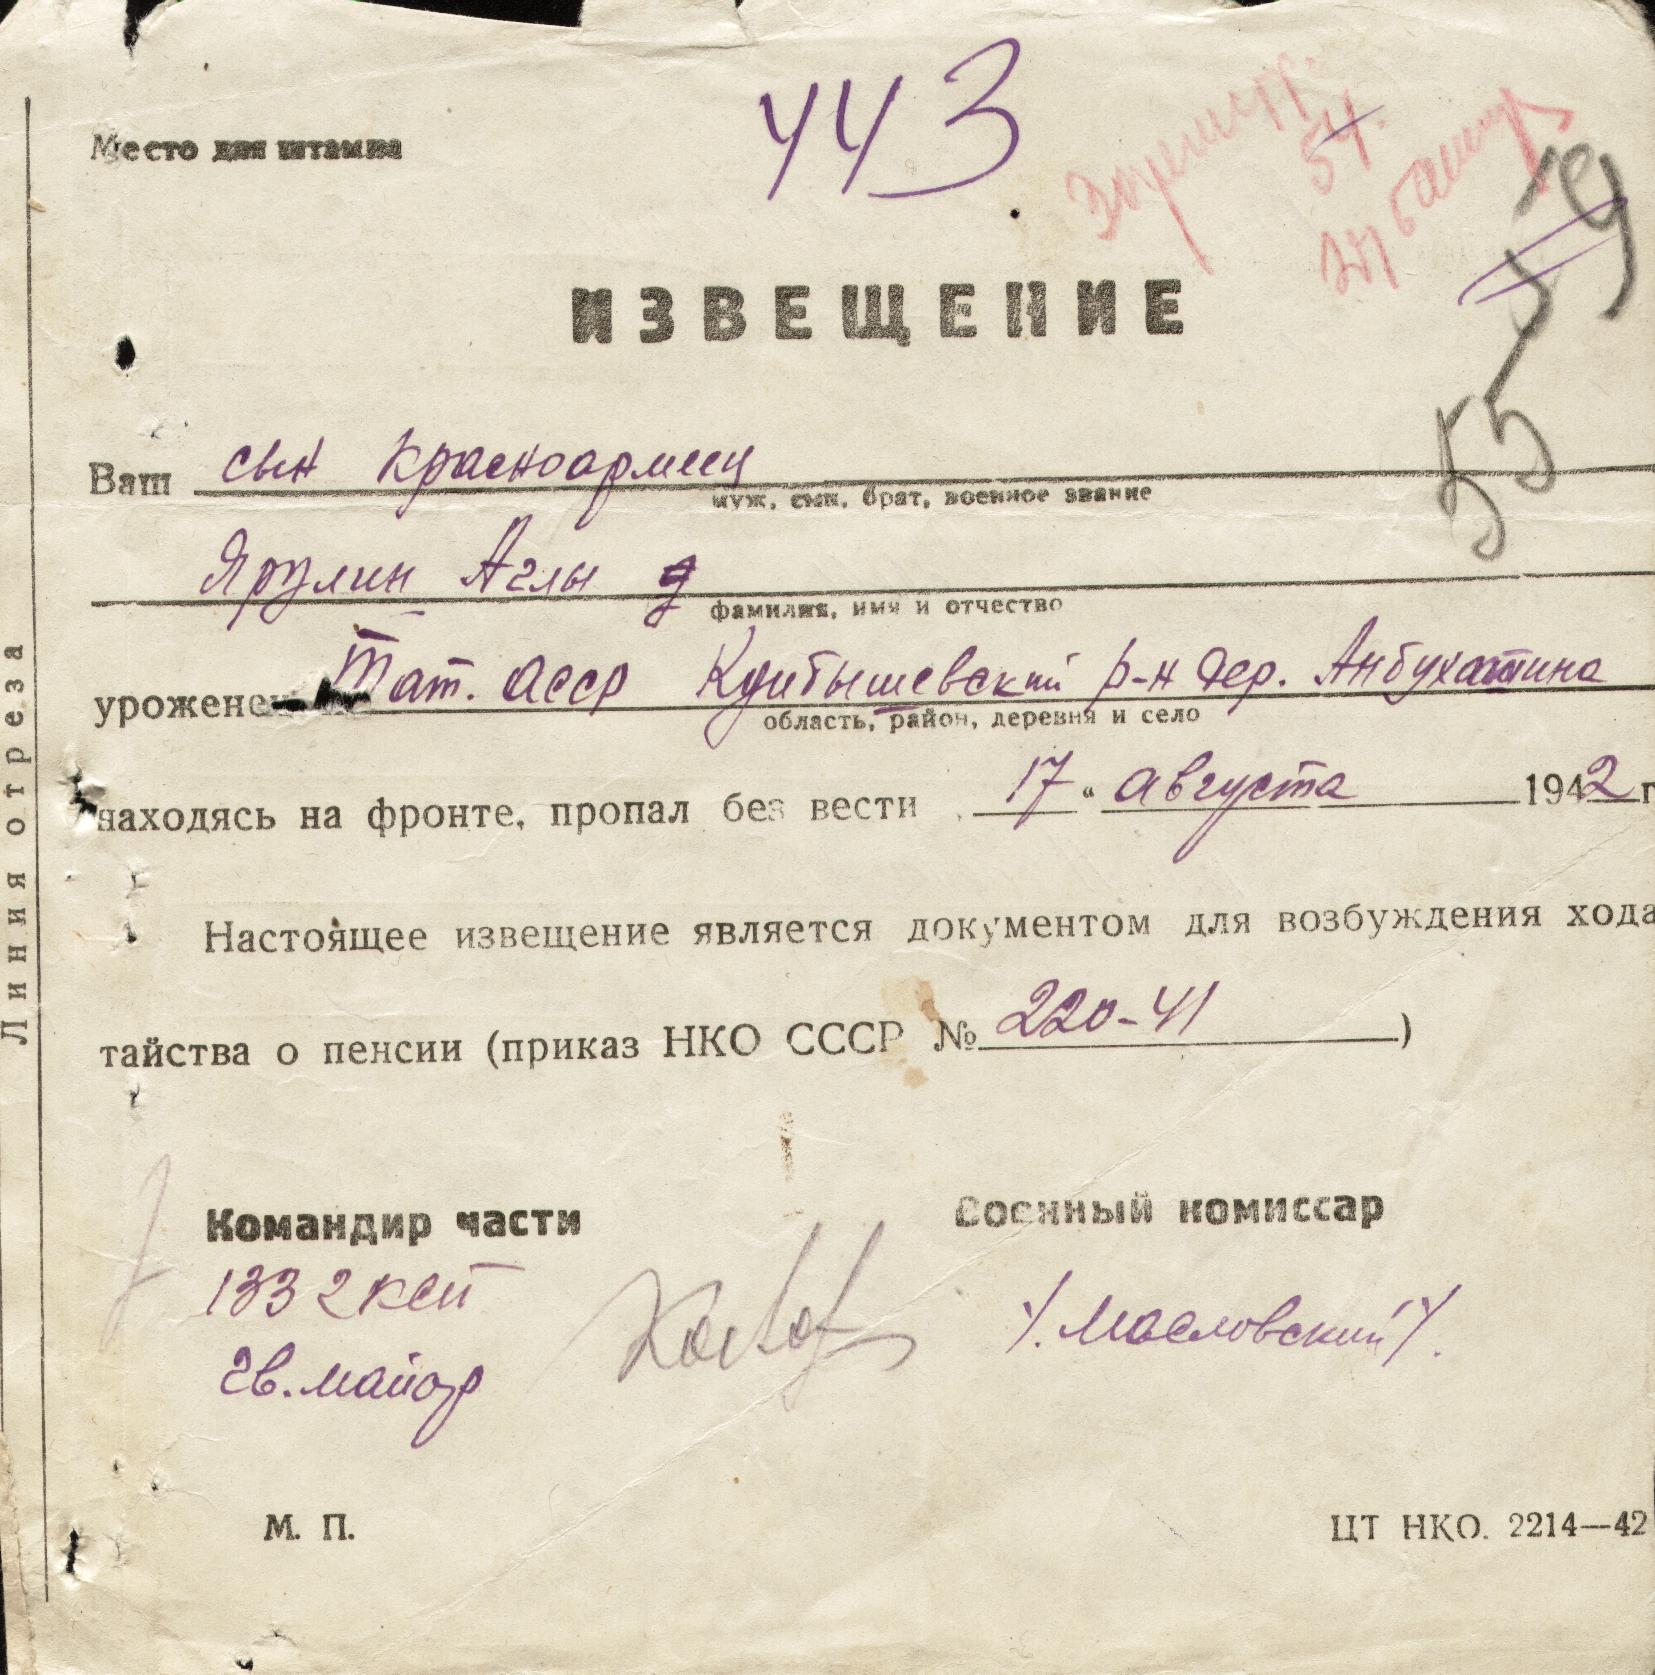 443
Место для штампа
54
ИЗВЕЩЕНИЕ
55
Ваш сын красноармеец
муж, сын, брат, военное звание
Ярулин Аглы
фамилия, имя и отчество
уроженец Тат. АССР Куйбышевский р-н дер. Анбухатина
область, район, деревня и село
находясь на фронте, пропал без вести „17“ августа 1942 г
Настоящее извещение является документом для возбуждения хода
тайства о пенсии (приказ НКО СССР № 220-41)
Командир части Военный комиссар
1332 КСП
гв. майор /. Масловский /.
М. П. ЦТ НКО. 2214—42
Линия отреза